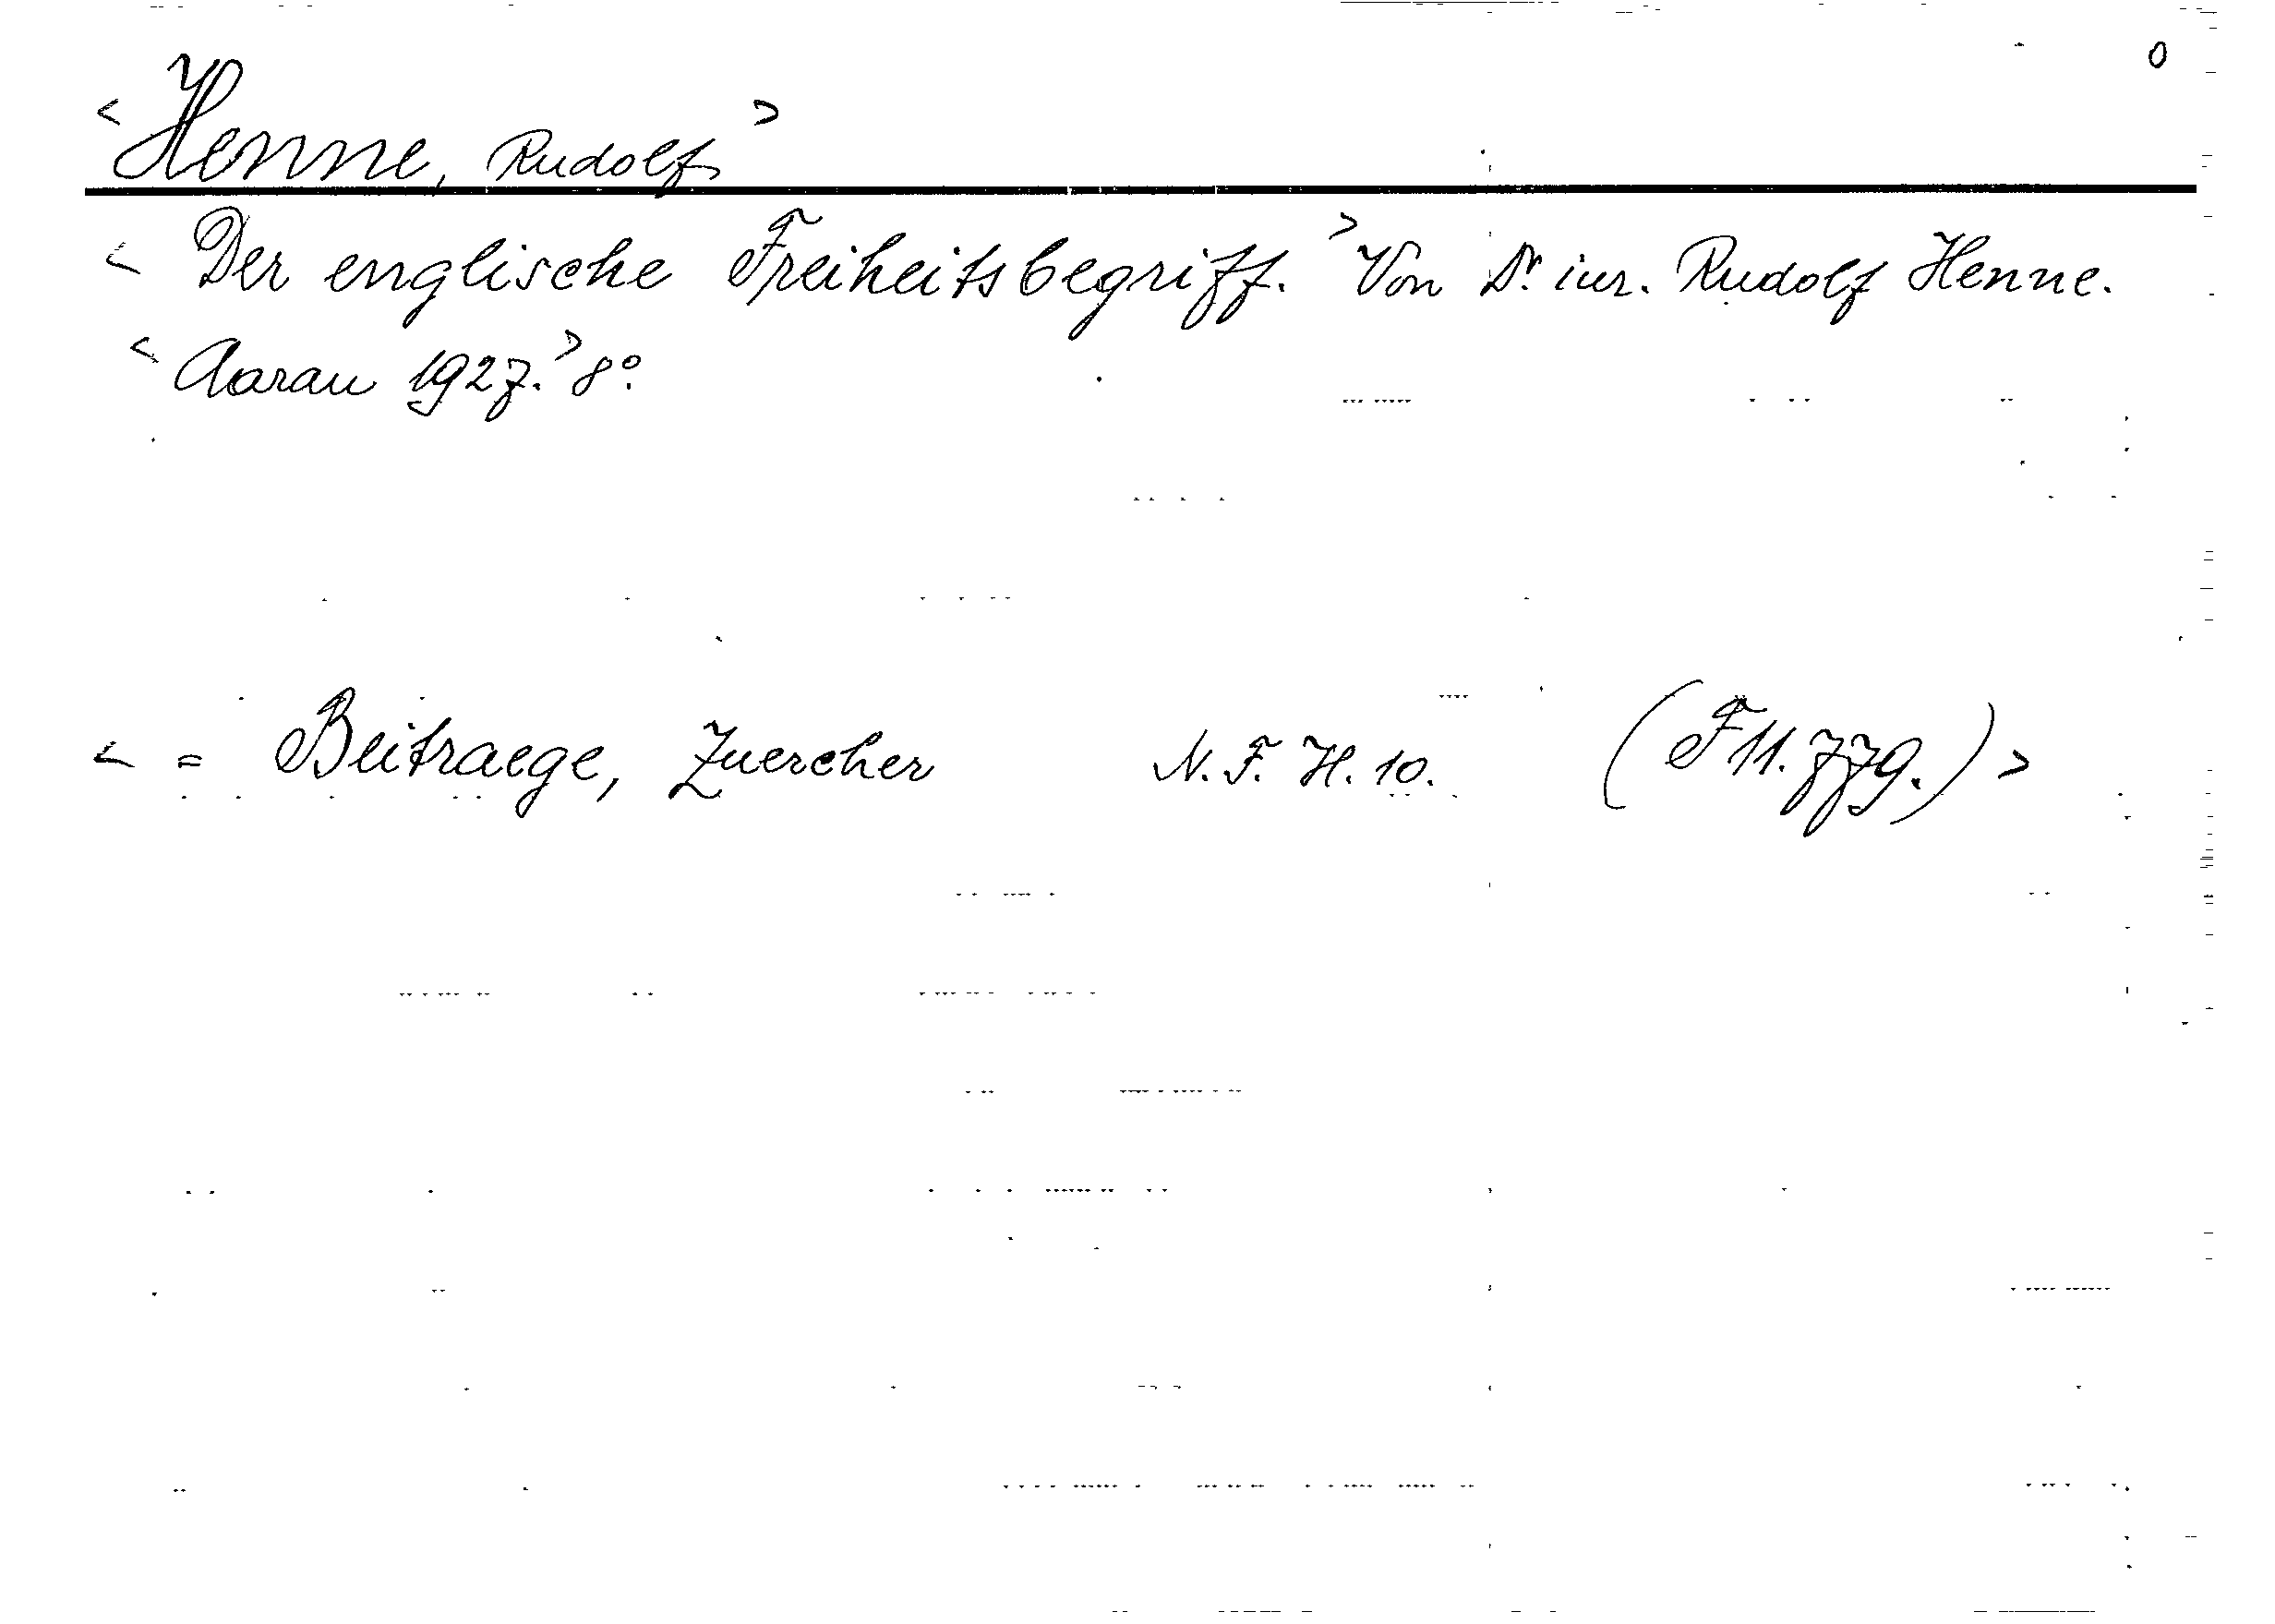 0
< Henne, Rudolf >
< Der englische Freiheitsbegriff. > Von Dr. iur. Rudolf Henne.
< Aarau 1927. > 8°.
< = Beitraege, Zuercher N. F. H. 10. (F 11. 779.) >